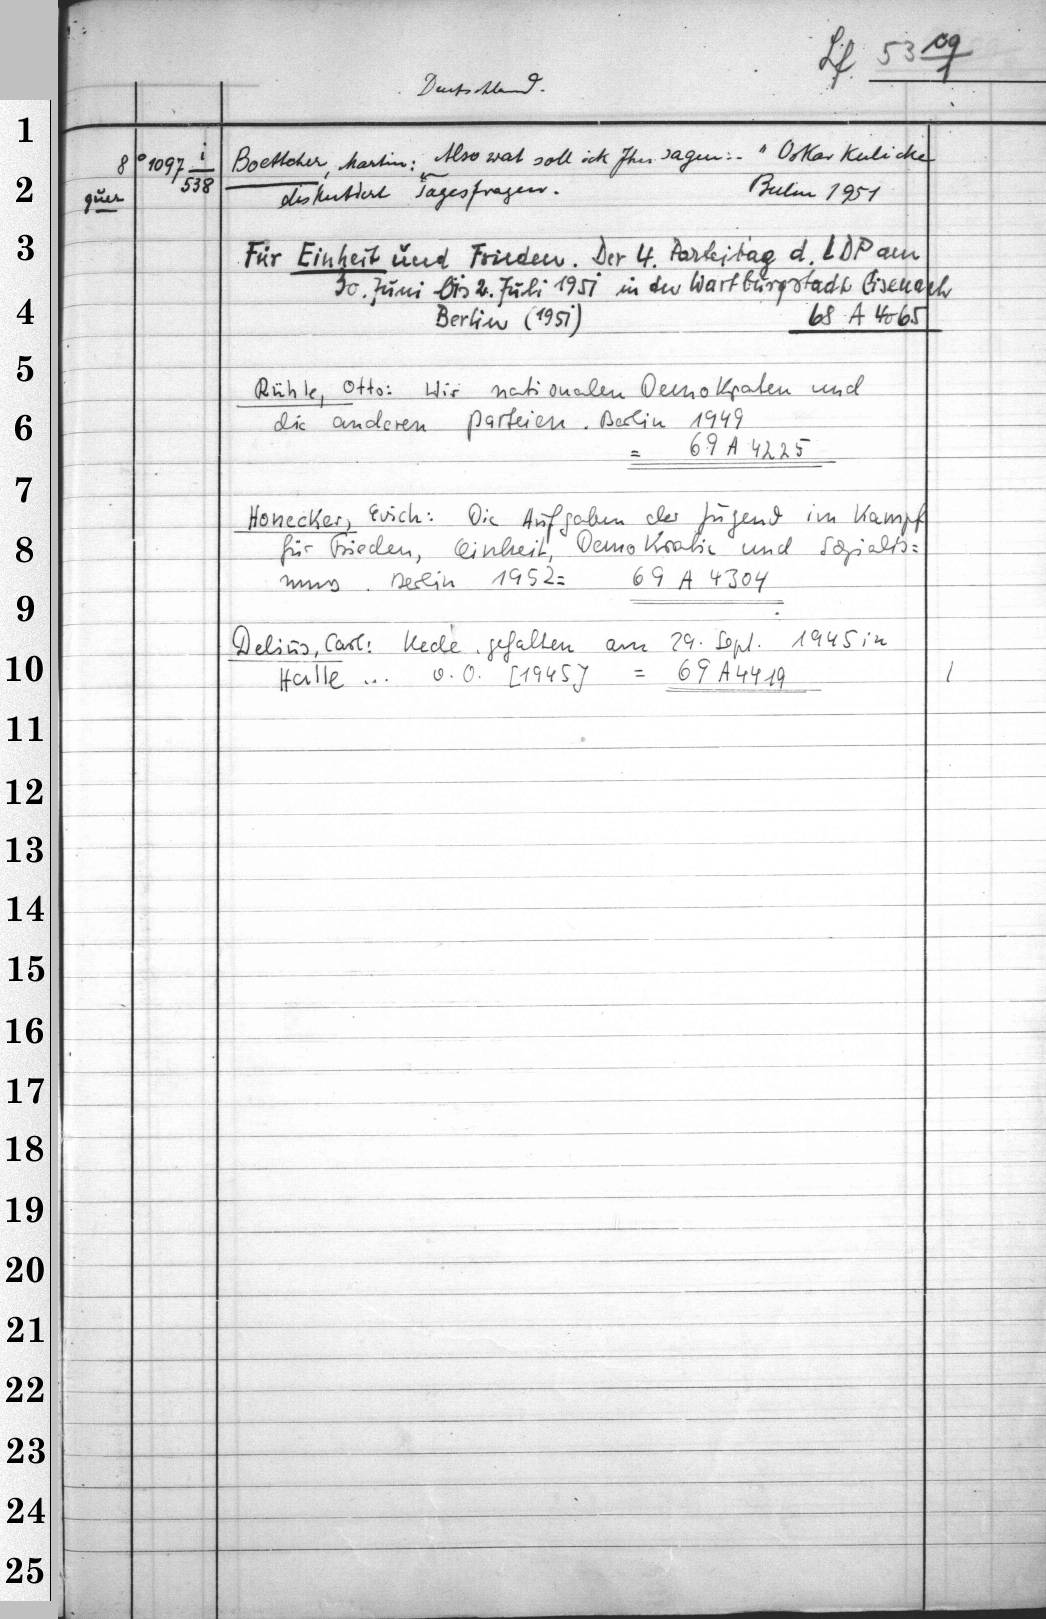 Lf 53 109
1
Deutschland.
1
8° 1097 i Boettcher, Martin: „Also wat soll ick Ihn sagen..." Oskar Kulicke
538
2
quer diskutiert Tagesfragen. Berlin 1951
3
Für Einheit und Frieden. Der 4. Parteitag d. LDP am
30. Juni bis 2. Juli 1951 in der Wartburgstadt Eisenach
4
Berlin (1951) 68 A 4065
5
Rühle, Otto: Wir nationalen Demokraten und
6
die anderen Parteien. Berlin 1949
= 69 A 4225
7
Honecker, Erich: Die Aufgaben der Jugend im Kampf
8
für Frieden, Einheit, Demokratie und Sozialis=
mus. Berlin 1952= 69 A 4304
9
Delius, Carl: Rede, gehalten am 29. Sept. 1945 in
10
Halle ... o.O. [1945] = 69 A 4419
11
12
13
14
15
16
17
18
19
20
21
22
23
24
25